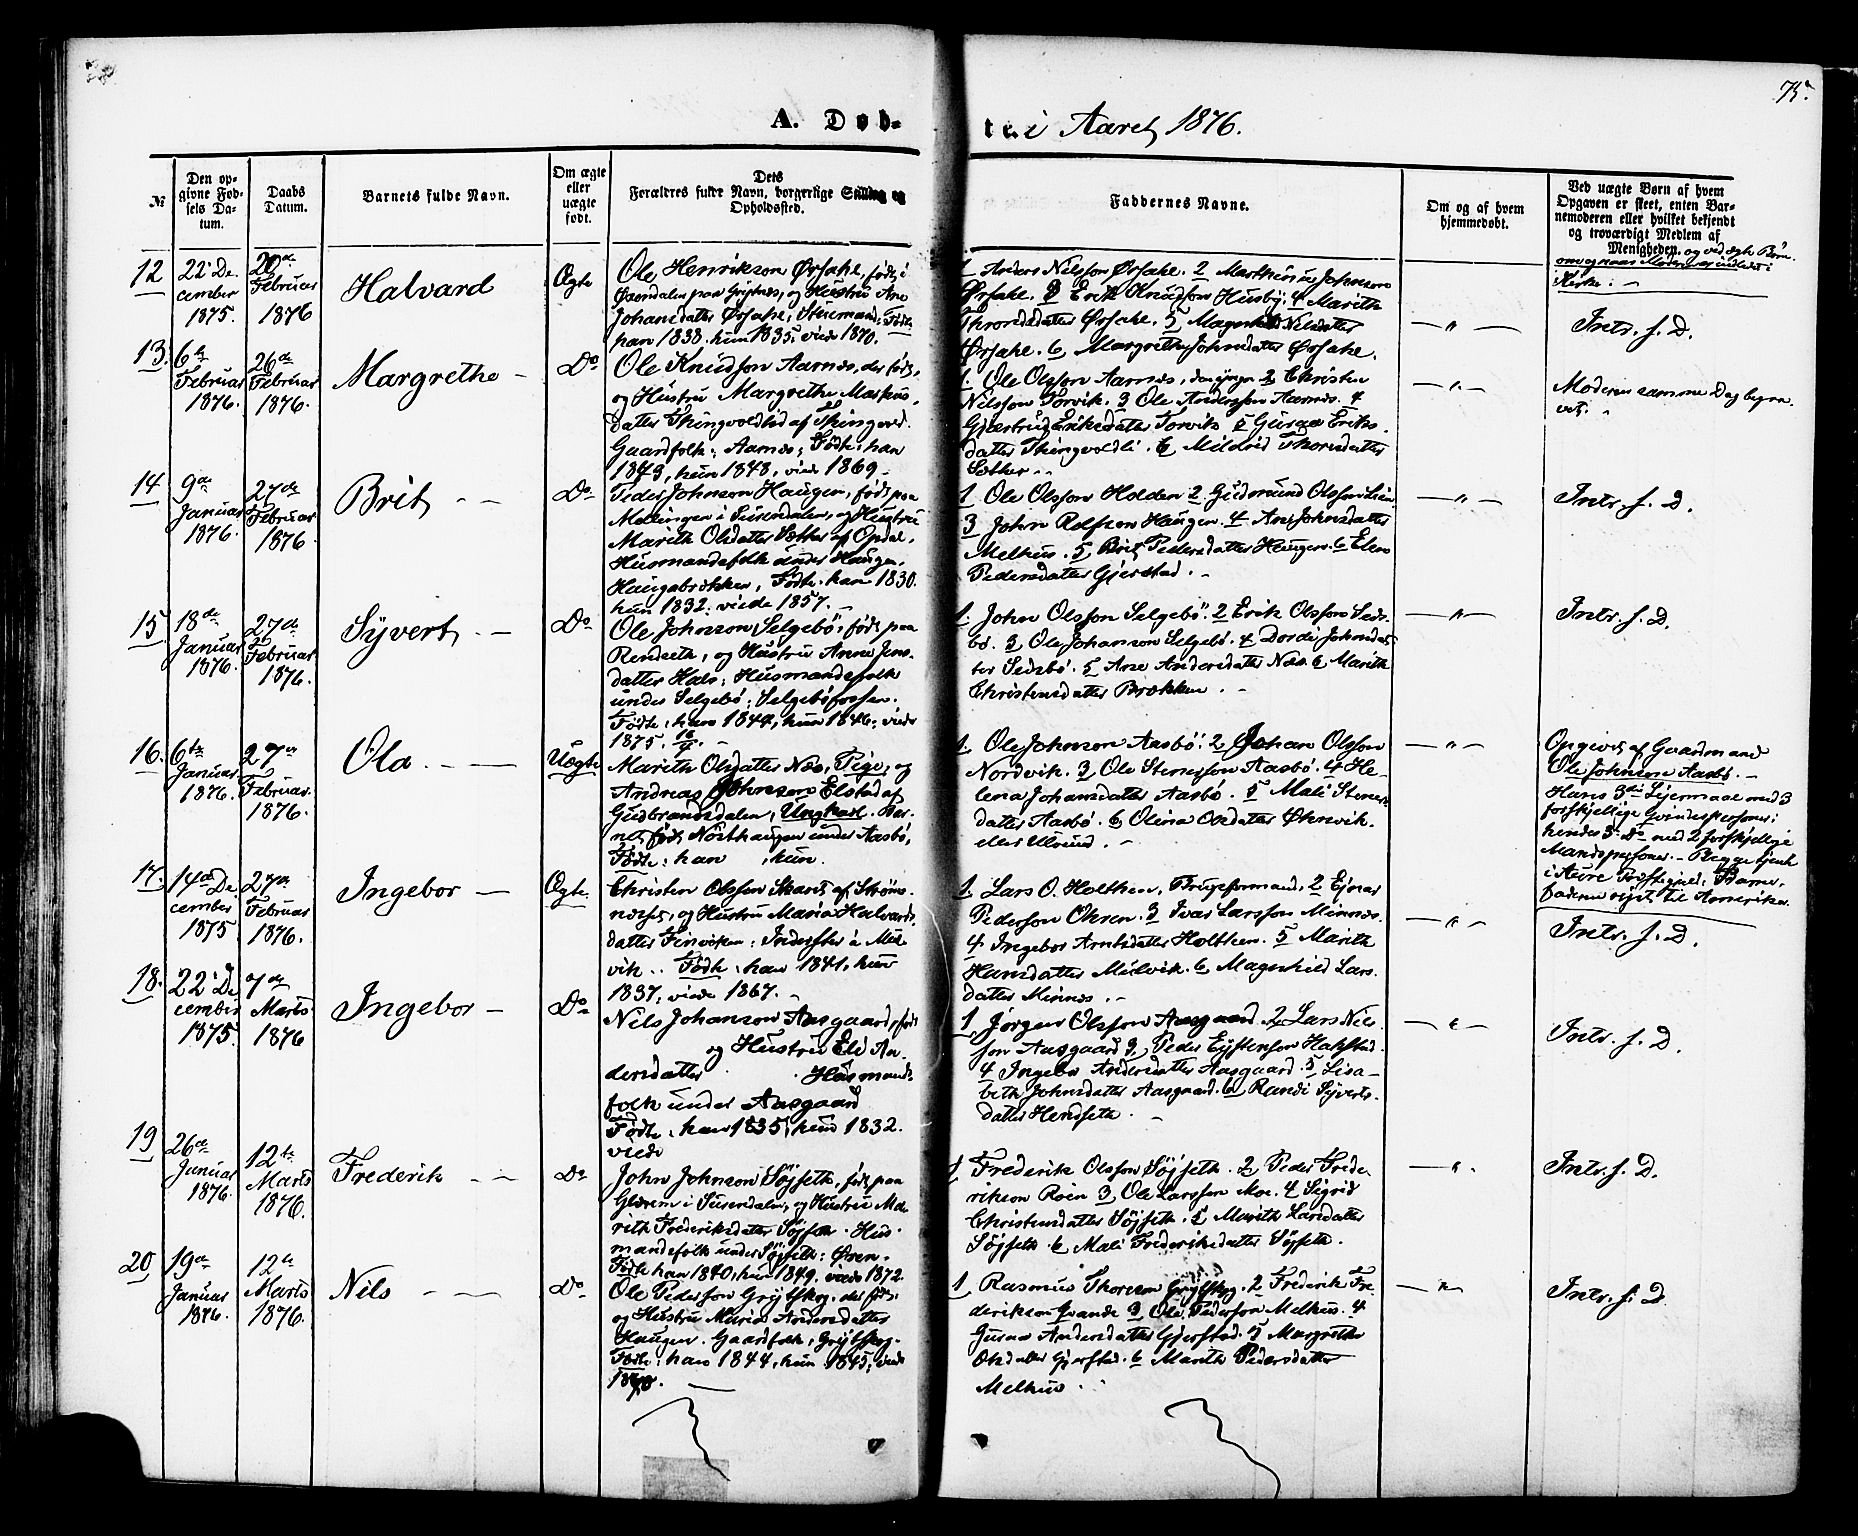 75.
A. Døb-
te i Aaret 1876.
№
Den op-
givne Fød-
sels Da-
tum.
Daabs
Datum.
Barnets fulde Navn.
Om ægte
eller
uægte
født.
Dets
Forældres fulde Navn, borgerlige Stilling og
Opholdssted.
Faddernes Navne.
Om og af hvem
hjemmedøbt.
Ved uægte Børn af hvem
Opgaven er skeet, enten Bar-
nemoderen eller hvilket bekjendt
og troværdigt Medlem af
Menigheden, og ved ægte Børn
12
22. De
cember
1875.
20de
Februar
1876
Halvard
Ægte
Ole Henrikson Ørsahe, født i
og Hustru Ane
Johansdatter Ørsahe, Født
han 1833. hun 1835, viede 1870.
1. Anders Nilsson Ørsahe. 2 Johnson
Ørsahe. 3 Erik Knudson Husby, 4 Marith
Ørsahe. 5 Magnhild Nilsdatter
Ørsahe. 6 Margrethe Johnsdatter Ørsahe.
— " —
Intr. s. D.
13.
6te
Februar
1876.
26de
Februar
1876.
Margrethe -
Do
Ole Knudson Aarnes, der født,
og Hustru Margrethe Markus-
datter Thingvoldlid af Thingvold.
Gaardfolk, Aarnes, Født: han
1843, hun 1848, viede 1869.
1. Ole Olsson Aarnes, den yngre 2 Christen
Nilsson Torvik. 3 Ole Andersson Aarnes. 4
Eriksdatter Torvik 5 Guroe Eriks-
datter Thingvoldli. 6 Mildrid Thoresdatter
Sæther
— " —
Moderen samme Dag begra-
vet.
14
9de
Januar
1876.
27de
Februar
1876
Brit - -
Do
Peder Johnson Haugen, født paa
i Surendalen, og Hustru
Marith Olsdatter Sætter af Opdal,
Husmandsfolk under Haugen,
Haugabrekken, Født: han 1830.
hun 1832, viede 1857.
1 Ole Olsson Holden 2 Gudmund Olsson
3 John Rolfson Haugen. 4 Ane Johnsdatter
Melhus. 5 Brit Pedersdatter Haugen. 6 Elen
Pedersdatter Gjerstad.
— " —
Intr. s. D.
15
18de
Januar
1876.
27de
Februar
1876.
Syvert - -
Do
Ole Johnson Selgebö, født paa
Rendseth, og Hustru Anne Jens-
datter Hals, Husmandsfolk
under Selgebö, Selgeböfossen.
Født: han 1844, hun 1846, viede
1875.
1. John Olsson Selgebö. 2 Erik Olsson
bö. 3 Ole Johanson Selgebö. 4 Dordi Johnsdat
ter 5 Ane Andersdatter Næs. 6 Marith
Christensdatter Brekken.
— " —
Intr. s. D.
16.
6te
Januar
1876.
27de
Februar
1876.
Ola - - -
Uægte
Marith Olsdatter Næs, Pige, og
Andreas Johnson Elstad af
Gudbrandsdalen, Ungkarl. Bar-
net født Nordhaugen under Aasbö,
Født: han , hun.
1. Ole Johnson Aasbö. 2 Johan Olsson
Nordvik. 3 Ole Stenersson Aasbö. 4 He-
lena Johansdatter Aasbö. 5 Mali Steners
datter Aasbö. 6 Olina Olsdatter
— " —
Opgivet af Gaardmand
Ole Johnson Aasbö. -
Hans 3die Leiermaal med 3
forskjellige Qvindespersoner;
hendes 3. Do med 2 forskjellige
Mandspersoner. - Begge tjent
i Aure Præstegjeld. Barne-
faderen reist til Amerika.
17.
14de De
cember
1875
27de
Februar
1876.
Ingebor -
Ægte
Christen Olsson Skaret af Ströms-
og Hustru Maria Halvards
datter Finviken, Inderster i Mel-
vik. Født: han 1841, hun
1837, viede 1867.
1. Lars O. Holthen, Brugsformand, 2 Ejnar
Pederson Ohren. 3 Ivar Larsson Minnes.
4 Ingebor Arntsdatter Holthen. 5 Marith
Hansdatter Mielvik. 6 Magnhild Lars-
datter Minnes.
— " —
Intr. s. D.
18.
22. De
cember
1875.
7de
Marts
1876
Ingebor -
Do
Nils Johanson Aasgaard, født
og Hustru Eli An-
dersdatter Husmands-
folk under Aasgaard
Født: han 1835, hun 1832.
viede
1. Jörgen Olsson Aasgaard 2 Lars Nils-
son Aasgaard 3 Peder Eystenson Halsstad.
4 Ingebor Andersdatter Aasgaard 5 Lisa-
beth Johnsdatter Aasgaard. 6 Randi Syverts-
datter Hendseth.
— " —
Intr. s. D.
19
26de
Januar
1876.
12te
Marts
1876.
Frederik - -
Do
John Johnson Söjseth, født paa
Glærem i Surendalen, og Hustru Ma-
rith Frederiksdatter Söjseth. Hus-
mandsfolk under Söjseth: Øren.
Født han 1840, hun 1849, viede 1872
1 Frederik Olsson Söjseth. 2 Peder Frede
rikson Röen 3 Ole Larsson Moe. 4 Sigrid
Christensdatter Söjseth. 5 Marith Larsdatter
Söjseth. 6 Mali Frederiksdatter Söjseth.
— " —
Intr. s. D.
20
19de
Januar
1876.
12te
Marts
1876.
Nils - - -
Do
Ole Pederson Grytskog, der født,
og Hustru Maria Andersdatter
Haugen. Gaardfolk, Grytskog.
Født: han 1844, hun 1845, viede
1870.
1 Rasmus Thoreson Grytskog. 2 Frederik Fre-
derikson Grande 3 Ole Pederson Melhus. 4
Guroe Andersdatter Gjerstad. 5 Margrethe
Olsdatter Gjerstad. 6 Marith Pedersdatter
Melhus
— " —
Intr. s. D.